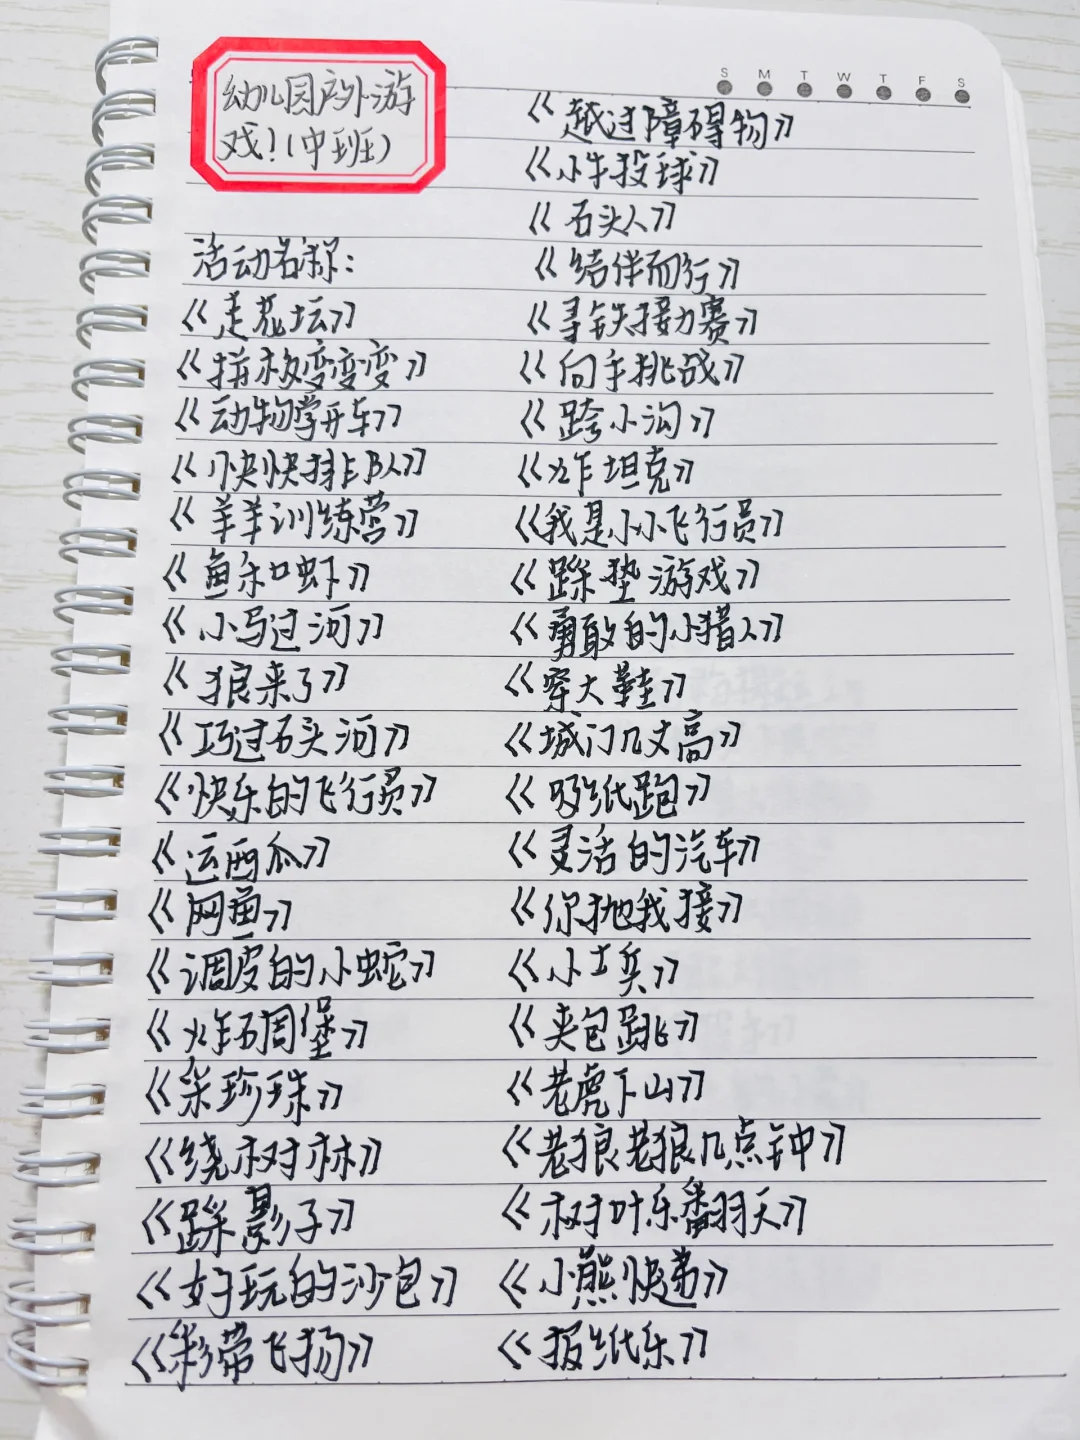 幼儿园户外游
戏!(中班)
S M T W T F S
活动名称:
《走花坛》
《拼板变变变》
《动物学开车》
《快快排队》
《羊羊训练营》
《鱼和虾》
《小马过河》
《狼来了》
《巧过石头河》
《快乐的飞行员》
《运西瓜》
《网鱼》
《调皮的小蛇》
《炸碉堡》
《采珍珠》
《绕树林》
《踩影子》
《好玩的沙包》
《彩带飞扬》
《越过障碍物》
《小牛投球》
《石头人》
《结伴而行》
《寻铁接力赛》
《向手挑战》
《跨小沟》
《炸坦克》
《我是小小飞行员》
《踩垫游戏》
《勇敢的小猎人》
《穿大鞋》
《城门几丈高》
《吸纸跑》
《灵活的汽车》
《你抛我接》
《小士兵》
《夹包跳》
《老虎下山》
《老狼老狼几点钟》
《树叶乐翻天》
《小熊快递》
《报纸乐》